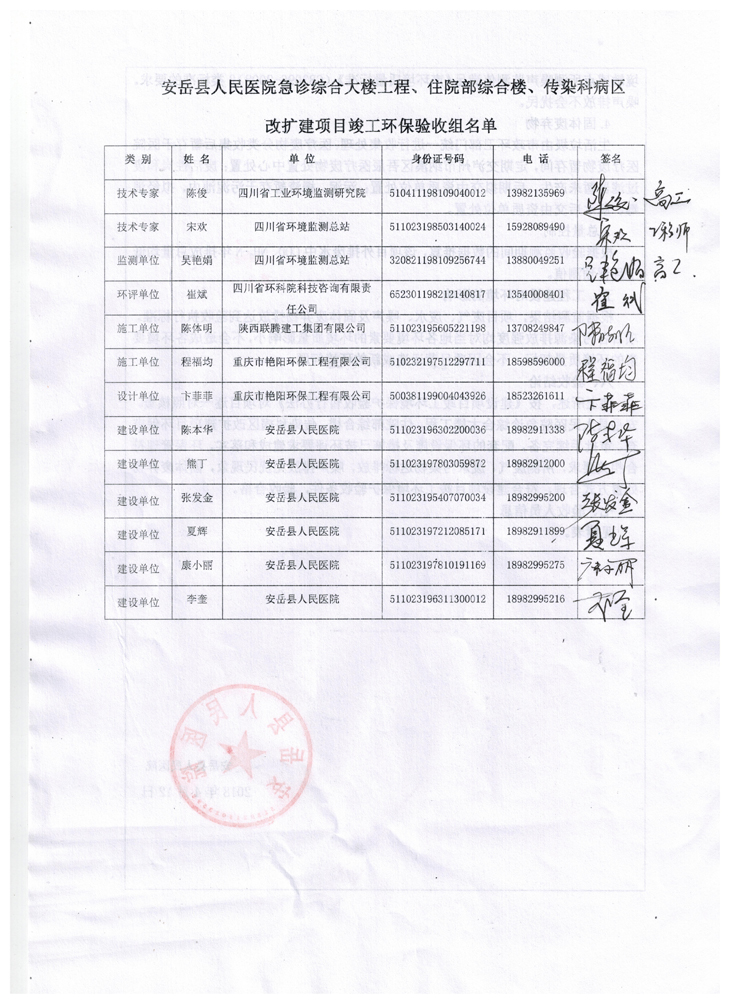 安岳县人民医院急诊综合大楼工程、住院部综合楼、传染科病区
改扩建项目竣工环保验收组名单
类 别 姓 名 单 位 身份证号码 电 话 签名
技术专家 陈俊 四川省工业环境监测研究院 510411198109040012 13982135969 高工
技术专家 宋欢 四川省环境监测总站 511023198503140024 15928089490 宋欢 工程师
监测单位 吴艳娟 四川省环境监测总站 320821198109256744 13880049251 吴艳娟 高工
环评单位 崔斌 四川省环科院科技咨询有限责
任公司 652301198212140817 13540008401 崔斌
施工单位 陈体明 陕西联腾建工集团有限公司 511023195605221198 13708249847
施工单位 程福均 重庆市艳阳环保工程有限公司 510232197512297711 18598596000 程福均
设计单位 卞菲菲 重庆市艳阳环保工程有限公司 500381199004043926 18523261611 卞菲菲
建设单位 陈本华 安岳县人民医院 511021196302200036 18982911338 陈本华
建设单位 熊丁 安岳县人民医院 511023197803059872 18982912000
建设单位 张发金 安岳县人民医院 511023195407070034 18982995200 张发金
建设单位 夏辉 安岳县人民医院 511023197212085171 18982911899 夏辉
建设单位 康小丽 安岳县人民医院 511023197810191169 18982995275 康小丽
建设单位 李奎 安岳县人民医院 511023196311300012 18982995216
安岳县人民医院